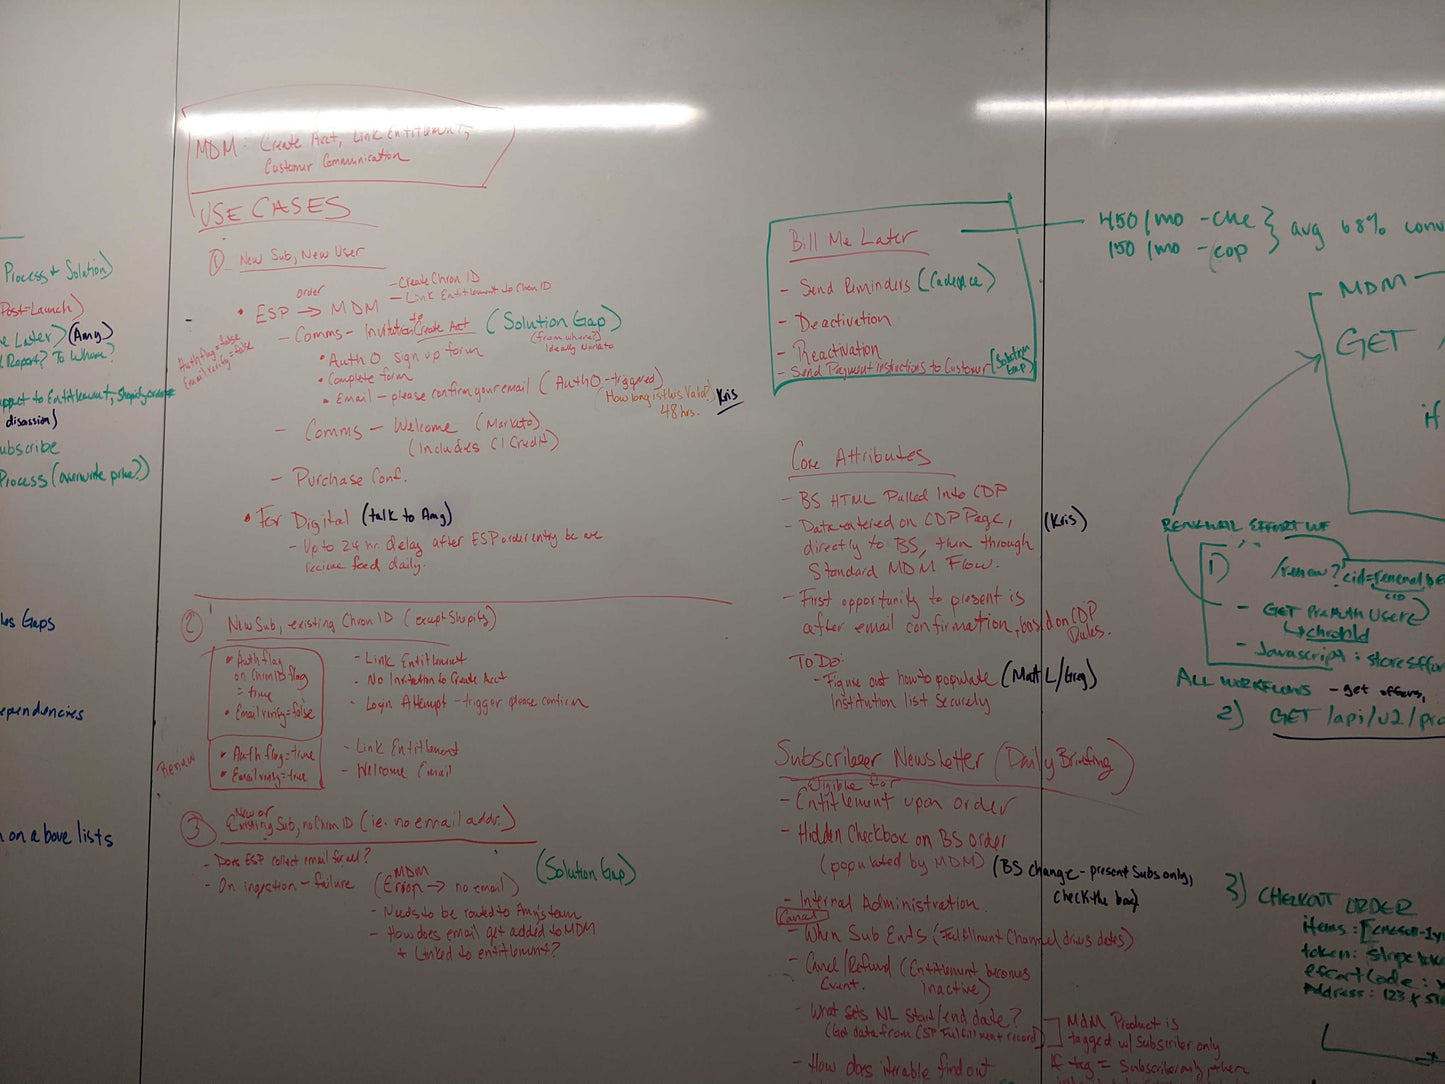 MDM: Create Acct, Link Entitlement,
Customer Communication
USE CASES
① New Sub, New User
order
• ESP → MDM
- Create Chron ID
- Link Entitlement to Chron ID
Auth flag = false
Email verify = false
- Comms - Invitation to Create Acct (Solution Gap)
(from where?)
Ideally Marketo
• Auth0 sign up form
• Complete form
• Email - please confirm your email (Auth0-triggered)
(How long is this valid?)
48 hrs.
Kris
- Comms - Welcome (Marketo)
(Includes CI Credit)
- Purchase Conf.
• For Digital (talk to Amy)
- Up to 24 hr. delay after ESP order entry bc we
recieve feed daily.
② New Sub, existing Chron ID (except Shopify)
• Auth flag
on Chron ID flag
= true
• Email verify = false
- Link Entitlement
- No Invitation to Create Acct
- Login Attempt - trigger please confirm
Renew
• Auth flag = true
• Email verify = true
- Link Entitlement
- Welcome Email
③ New or
Existing Sub, no Chron ID (ie. no email addr.)
- Does ESP collect email for all?
- On ingestion - failure
MDM
(Error → no email)
(Solution Gap)
- Needs to be routed to Ann's team
- How does email get added to MDM
+ Linked to entitlement?
Bill Me Later
- Send Reminders (Cadence)
- Deactivation
- Reactivation
- Send Payment Instructions to Customer (Solution
Gap)
450/mo - che
150/mo - cop
avg 68% conv
Core Attributes
- BS HTML Pulled Into CDP
- Data entered on CDP Page, (Kris)
directly to BS, then through
Standard MDM Flow.
- First opportunity to present is
after email confirmation, based on CDP
Rules.
To Do:
- Figure out how to populate (Matt L/Greg)
Institution list Securely
Subscriber Newsletter (Daily Briefing)
Eligible for
- Entitlement upon order
- Hidden Checkbox on BS order
(populated by MDM) (BS change - present Subs only,
check the box)
- Internal Administration
Cancel
- When Sub Ends (Fulfillment Channel drives dates)
- Cancel/Refund (Entitlement becomes
Event. Inactive)
- What sets NL start/end date?
(Get data from ESP Fulfillment record)
MDM Product is
tagged w/ Subscriber only
If tag = Subscriber only, then
- How does iterable find out
Process + Solution)
Post-Launch)
e Later) (Amy)
Report? To Whom?
pact to Entitlement, Shopify order
disussion)
ubscribe
Process (overwrite price?)
les Gaps
ependencies
n on above lists
MDM
GET
if
RENEWAL EFFORT WF
1) /renew?cid=renewal
CID
- GET PreAuth User
↳ chronId
- Javascript: store effor
ALL WORKFLOWS - get offers,
2) GET /api/v2/pro
3) CHECKOUT ORDER
items:
token: stripe
effortCode:
Address: 123 x St